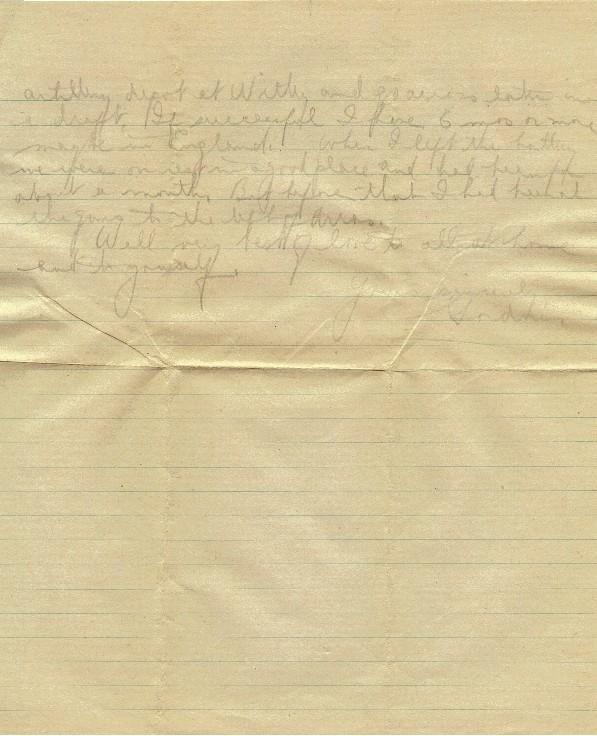 artillery depot at Witley and go across later in
a draft. If successful I have 6 mos or more
maybe in England. When I left the battery
we were on rest in a good place and had been
about a month. But before that I had
the guns to the left of Arras.
Well very best of love to all at home
and to yourself.
Yours sincerely
Gordon.